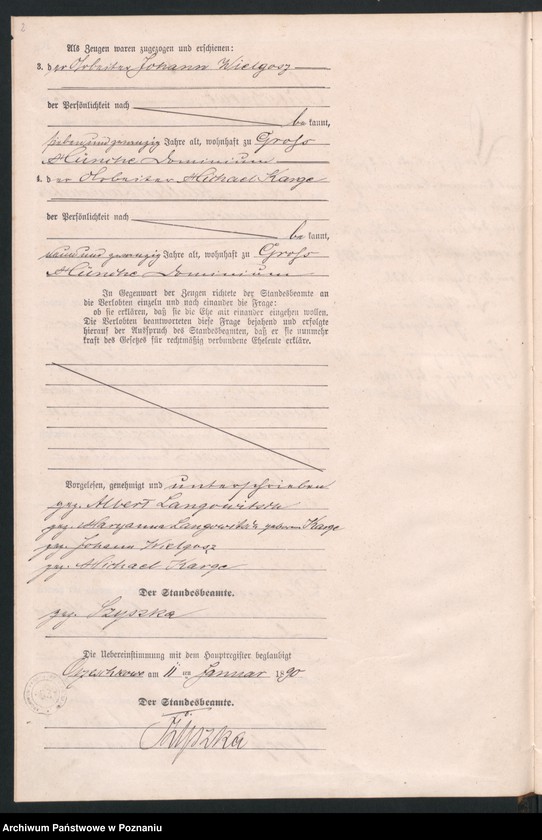 2
Als Zeugen waren zugezogen und erschienen:
3. der Arbeiter Johann Wielgosz
der Persönlichkeit nach
be kannt,
sieben und zwanzig Jahre alt, wohnhaft zu Groß
Münche Dominium
4. der Arbeiter Michael Karge
der Persönlichkeit nach
be kannt,
neun und zwanzig Jahre alt, wohnhaft zu Groß
Münche Dominium
In Gegenwart der Zeugen richtete der Standesbeamte an
die Verlobten einzeln und nach einander die Frage:
ob sie erklären, daß sie die Ehe mit einander eingehen wollen.
Die Verlobten beantworteten diese Frage bejahend und erfolgte
hierauf der Ausspruch des Standesbeamten, daß er sie nunmehr
kraft des Gesetzes für rechtmäßig verbundene Eheleute erkläre.
Vorgelesen, genehmigt und unterschrieben
gez. Albert
gez. Maryanna geborene Karge
gez. Johann Wielgosz
gez. Michael Karge
Der Standesbeamte.
gez. Szyszka
Die Uebereinstimmung mit dem Hauptregister beglaubigt
am 11 ten Januar 1890
Der Standesbeamte.
Szyszka
Archiwum Państwowe w Poznaniu